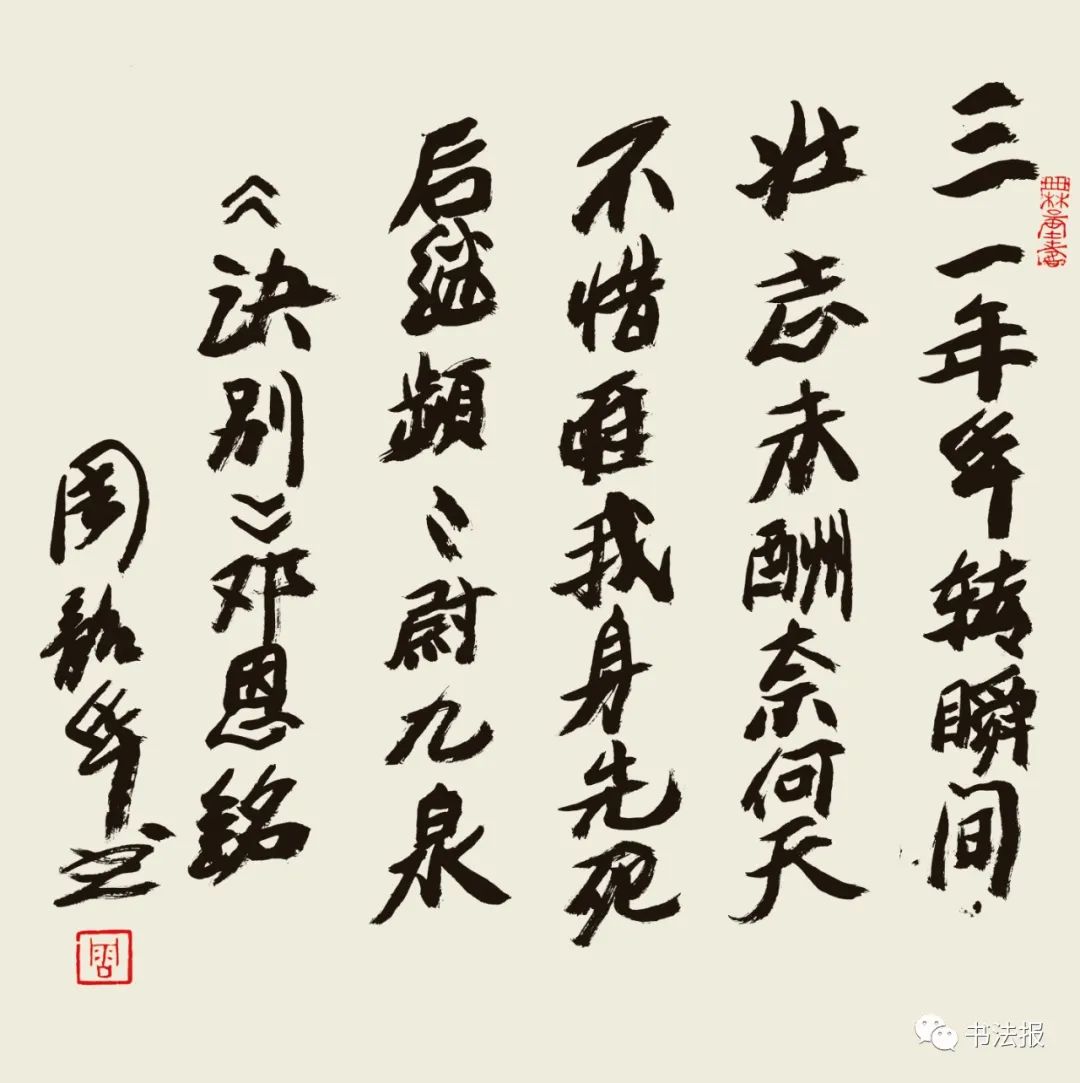 三一年华转瞬间
壮志未酬奈何天
不惜唯我身先死
后继频〻尉九泉
《诀别》邓恩铭
周韶华书
周
书法报